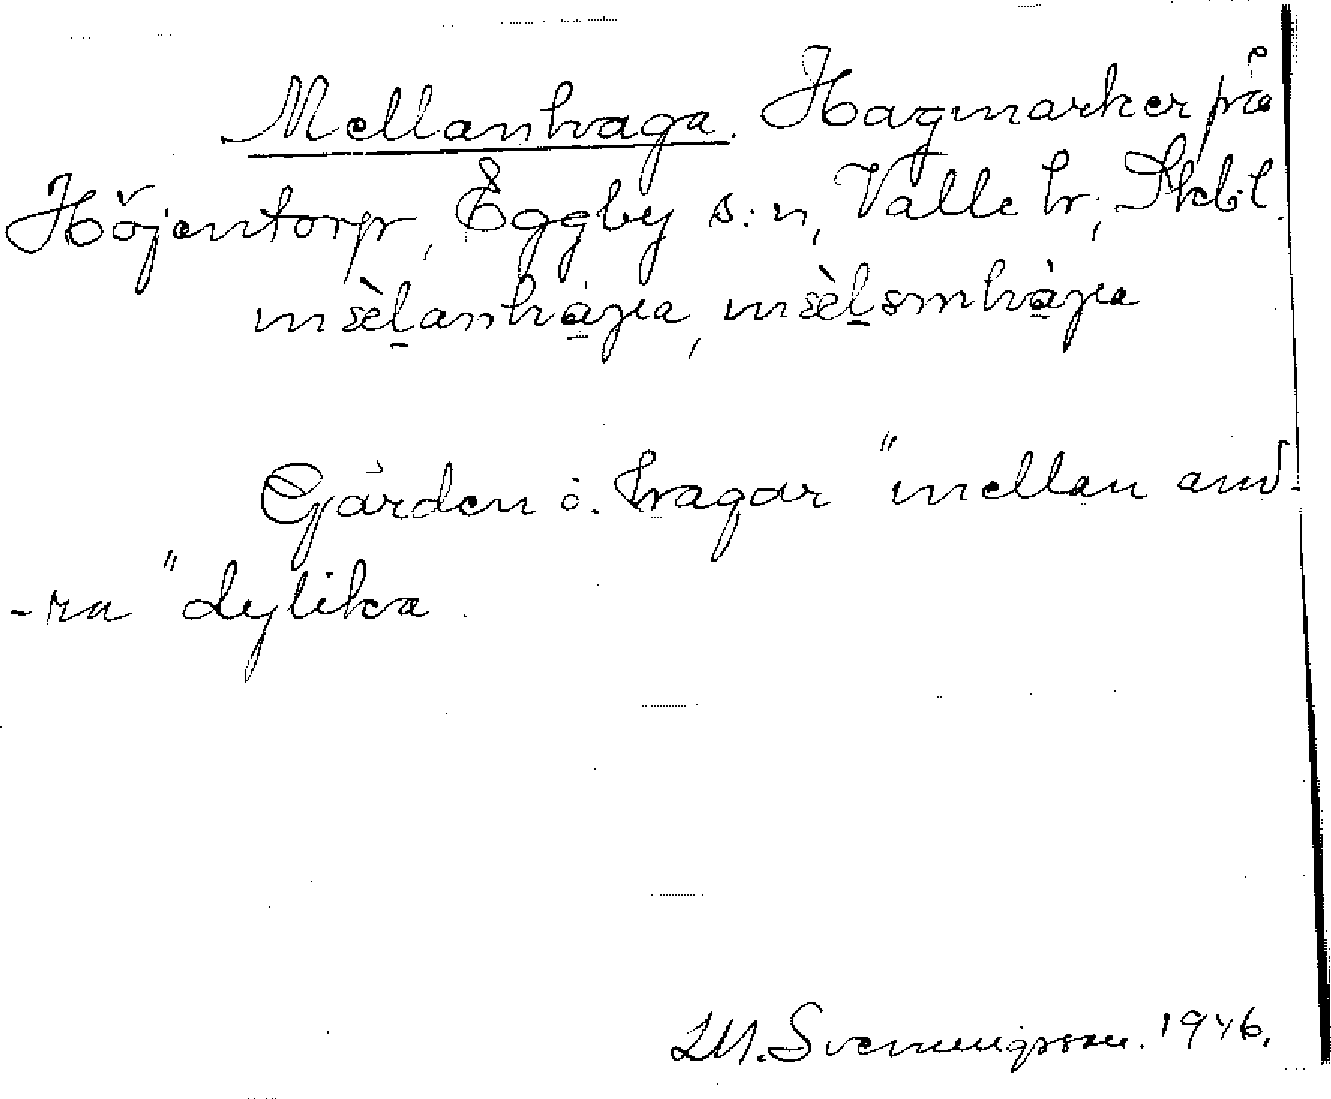 Mellanhaga. Hagmarker på
Höjentorp, Eggby s:n, Valle hr, Skbl.
mèlanhàga, mèlomhàga
Gärden o. hagar "mellan and-
-ra" dylika.
LM. Svenningsson. 1946.